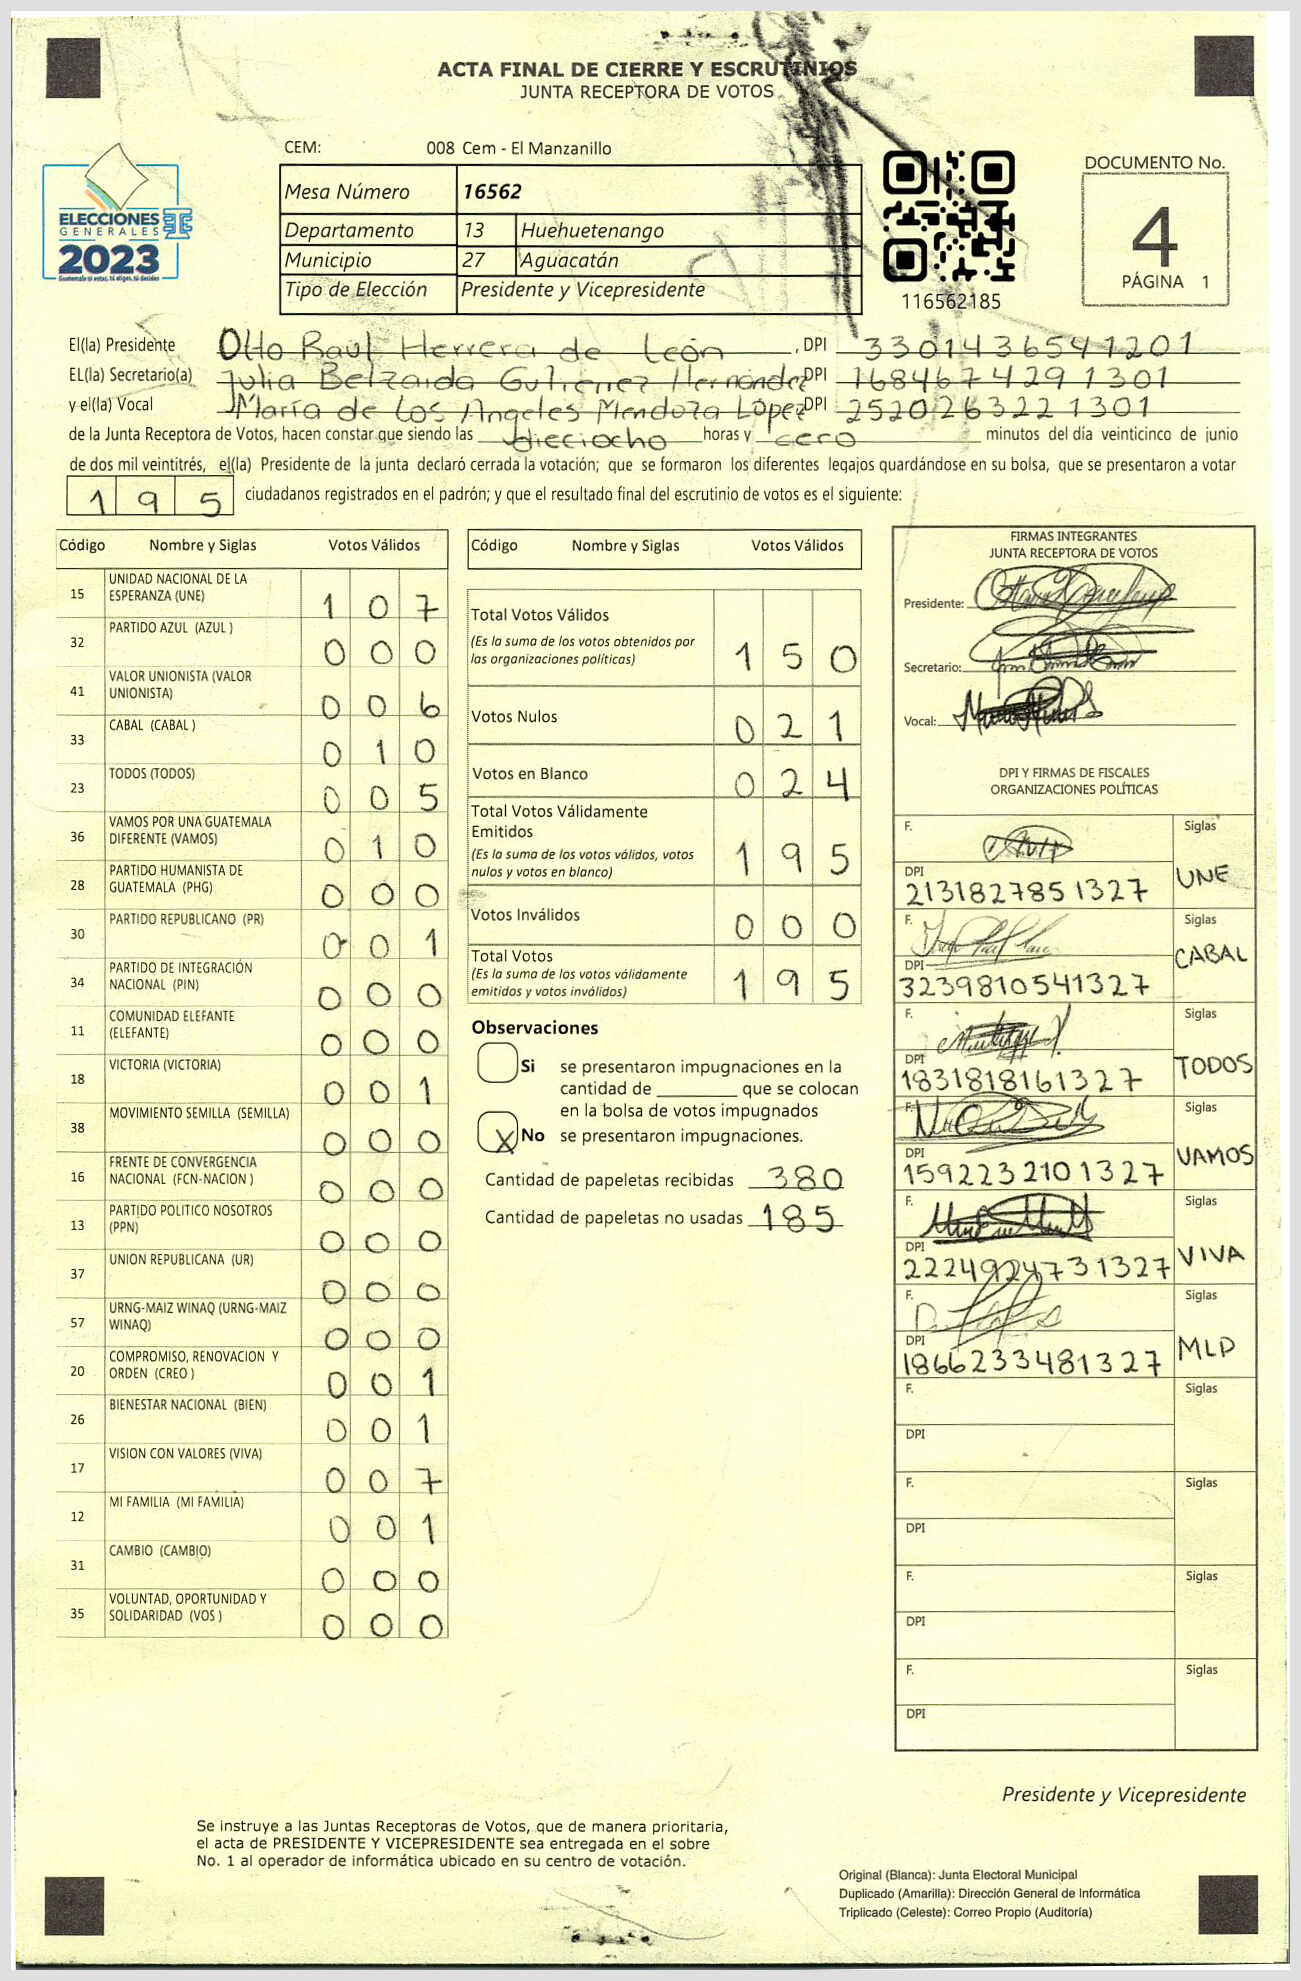 ACTA FINAL DE CIERRE Y ESCRUTINIOS
JUNTA RECEPTORA DE VOTOS
CEM: 008 Cem - El Manzanillo
Mesa Número 16562
Departamento 13 Huehuetenango
Municipio 27 Aguacatán
Tipo de Elección Presidente y Vicepresidente
ELECCIONES
GENERALES
2023
Guatemala tú votas, tú eliges, tú decides
116562185
DOCUMENTO No.
4
PÁGINA 1
El(la) Presidente Otto Raúl Herrera de León, DPI 3301436541201
EL(la) Secretario(a) Julia Belzaida Gutierrez Hernández DPI 1684674291301
y el(la) Vocal María de Los Angeles Mendoza López DPI 2520263221301
de la Junta Receptora de Votos, hacen constar que siendo las dieciocho horas y cero minutos del día veinticinco de junio
de dos mil veintitrés, el(la) Presidente de la junta declaró cerrada la votación; que se formaron los diferentes legajos quardándose en su bolsa, que se presentaron a votar
195 ciudadanos registrados en el padrón; y que el resultado final del escrutinio de votos es el siguiente:
Código Nombre y Siglas Votos Válidos
15 UNIDAD NACIONAL DE LA ESPERANZA (UNE) 107
32 PARTIDO AZUL (AZUL ) 000
41 VALOR UNIONISTA (VALOR UNIONISTA) 006
33 CABAL (CABAL ) 010
23 TODOS (TODOS) 005
36 VAMOS POR UNA GUATEMALA DIFERENTE (VAMOS) 010
28 PARTIDO HUMANISTA DE GUATEMALA (PHG) 000
30 PARTIDO REPUBLICANO (PR) 001
34 PARTIDO DE INTEGRACIÓN NACIONAL (PIN) 000
11 COMUNIDAD ELEFANTE (ELEFANTE) 000
18 VICTORIA (VICTORIA) 001
38 MOVIMIENTO SEMILLA (SEMILLA) 000
16 FRENTE DE CONVERGENCIA NACIONAL (FCN-NACION ) 000
13 PARTIDO POLITICO NOSOTROS (PPN) 000
37 UNION REPUBLICANA (UR) 000
57 URNG-MAIZ WINAQ (URNG-MAIZ WINAQ) 000
20 COMPROMISO, RENOVACION Y ORDEN (CREO ) 001
26 BIENESTAR NACIONAL (BIEN) 001
17 VISION CON VALORES (VIVA) 007
12 MI FAMILIA (MI FAMILIA) 001
31 CAMBIO (CAMBIO) 000
35 VOLUNTAD, OPORTUNIDAD Y SOLIDARIDAD (VOS ) 000
Código Nombre y Siglas Votos Válidos
Total Votos Válidos 150
(Es la suma de los votos obtenidos por
las organizaciones políticas)
Votos Nulos 021
Votos en Blanco 024
Total Votos Válidamente
Emitidos 195
(Es la suma de los votos válidos, votos
nulos y votos en blanco)
Votos Inválidos 000
Total Votos 195
(Es la suma de los votos válidamente
emitidos y votos inválidos)
Observaciones
Si se presentaron impugnaciones en la
cantidad de ________ que se colocan
en la bolsa de votos impugnados
X No se presentaron impugnaciones.
Cantidad de papeletas recibidas 380
Cantidad de papeletas no usadas 185
FIRMAS INTEGRANTES
JUNTA RECEPTORA DE VOTOS
Presidente:
Secretario:
Vocal:
DPI Y FIRMAS DE FISCALES
ORGANIZACIONES POLÍTICAS
F. Siglas
DPI 2131827851327 UNE
F. Siglas
DPI 3239810541327 CABAL
F. Siglas
DPI 1831818161327 TODOS
F. Siglas
DPI 1592232101327 VAMOS
F. Siglas
DPI 2224924731327 VIVA
F. Siglas
DPI 1866233481327 MLP
F. Siglas
DPI
F. Siglas
DPI
F. Siglas
DPI
F. Siglas
DPI
Presidente y Vicepresidente
Se instruye a las Juntas Receptoras de Votos, que de manera prioritaria,
el acta de PRESIDENTE Y VICEPRESIDENTE sea entregada en el sobre
No. 1 al operador de informática ubicado en su centro de votación.
Original (Blanca): Junta Electoral Municipal
Duplicado (Amarilla): Dirección General de Informática
Triplicado (Celeste): Correo Propio (Auditoría)